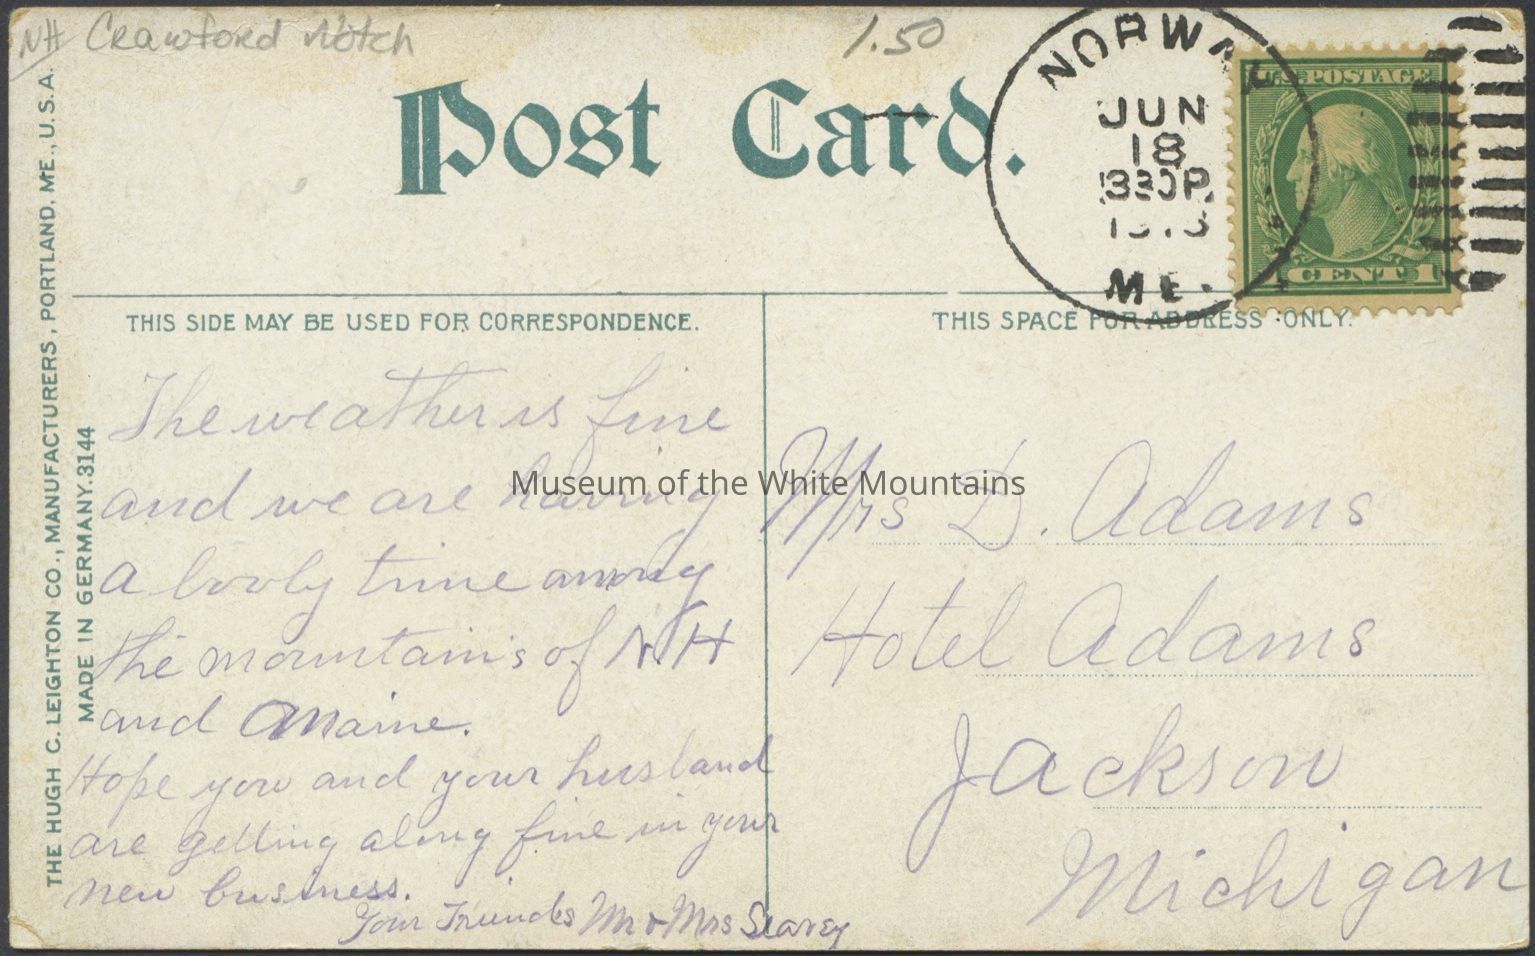 NH Crawford Notch
1.50
Post Card.
NORWAY
JUN
18
330P
ME.
U.S. POSTAGE
1 CENT 1
THE HUGH C. LEIGHTON CO., MANUFACTURERS, PORTLAND, ME., U.S.A.
MADE IN GERMANY. 3144
THIS SIDE MAY BE USED FOR CORRESPONDENCE.
The weather is fine
and we are having
a lovly time among
the mountains of N.H
and Maine.
Hope you and your husband
are getting along fine in your
new business.
Your Friends Mr & Mrs Seavey
THIS SPACE FOR ADDRESS ONLY.
Mrs D. Adams
Hotel Adams
Jackson
Michigan
Museum of the White Mountains